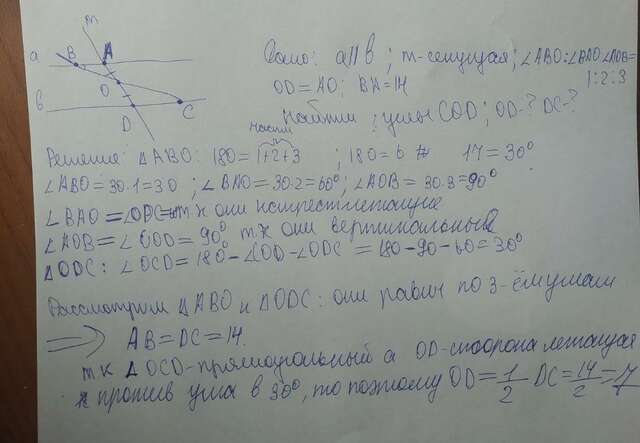 m
a B A
O
b D C
Дано: a||b; m-секущая; ∠ABO:∠BAO:∠AOB=
1:2:3
OD=AO; BA=14
Найти: углы COD; OD-? DC-?
части
Решение: △ABO: 180=1+2+3; 180=6 17=30°
∠ABO=30·1=30; ∠BAO=30·2=60°; ∠AOB=30·3=90°
∠BAO=∠ODC т.к они накрестлежащие
∠AOB=∠COD=90° т.к они вертикальные
△ODC: ∠OCD=180-∠COD-∠ODC=180-90-60=30°
Рассмотрим △ABO и △ODC: они равны по 3-ём углам
⇒ AB=DC=14.
т к △OCD-прямоугольный а OD-сторона лежащая
против угла в 30°, то поэтому OD=1/2 DC=14/2=7